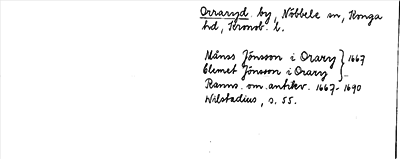 Orraryd by, Nöbbele sn, Konga
hd, Kronob. l.
Månss Jönsson i Orary } 1667
Clemet Jönsson i Orary
Ranns. om. antikv. 1667-1690
Wilstadius, s. 55.